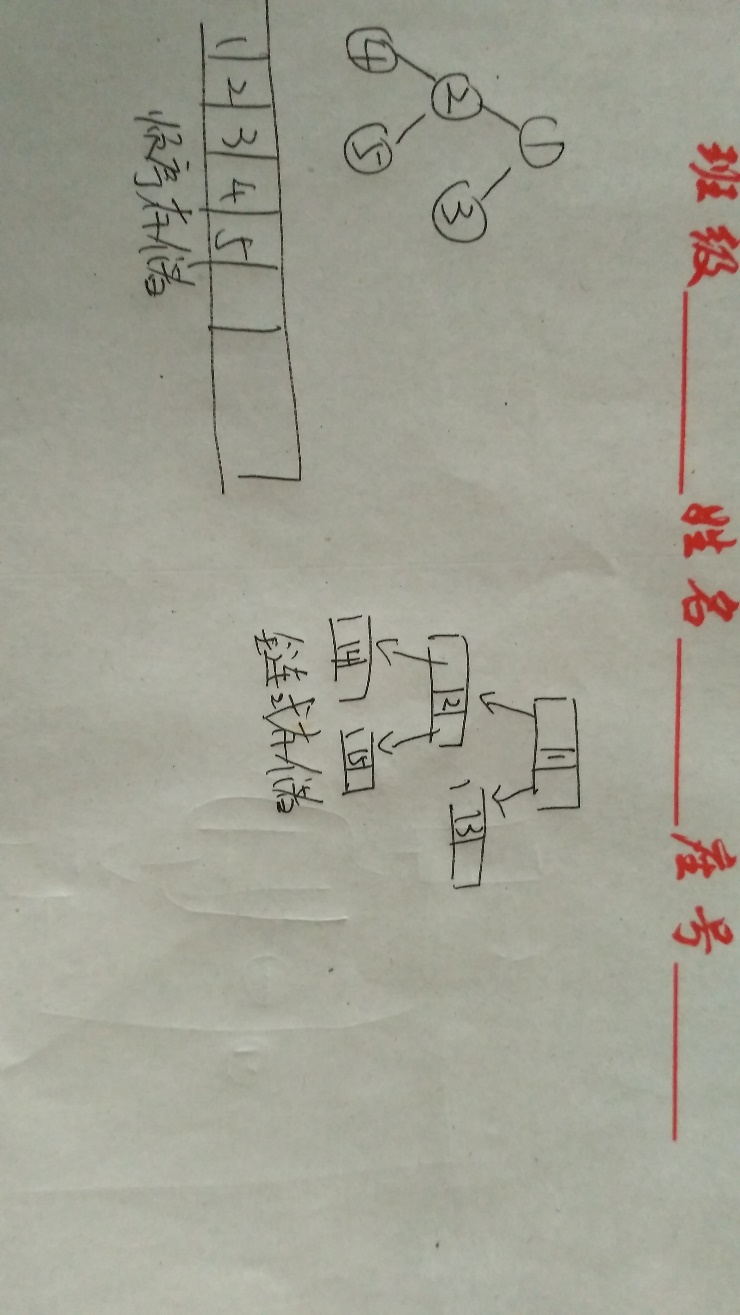 班级 姓名 座号
1
2 3
4 5
1 2 3 4 5
顺序存储
1
2 3
4 5
链式存储